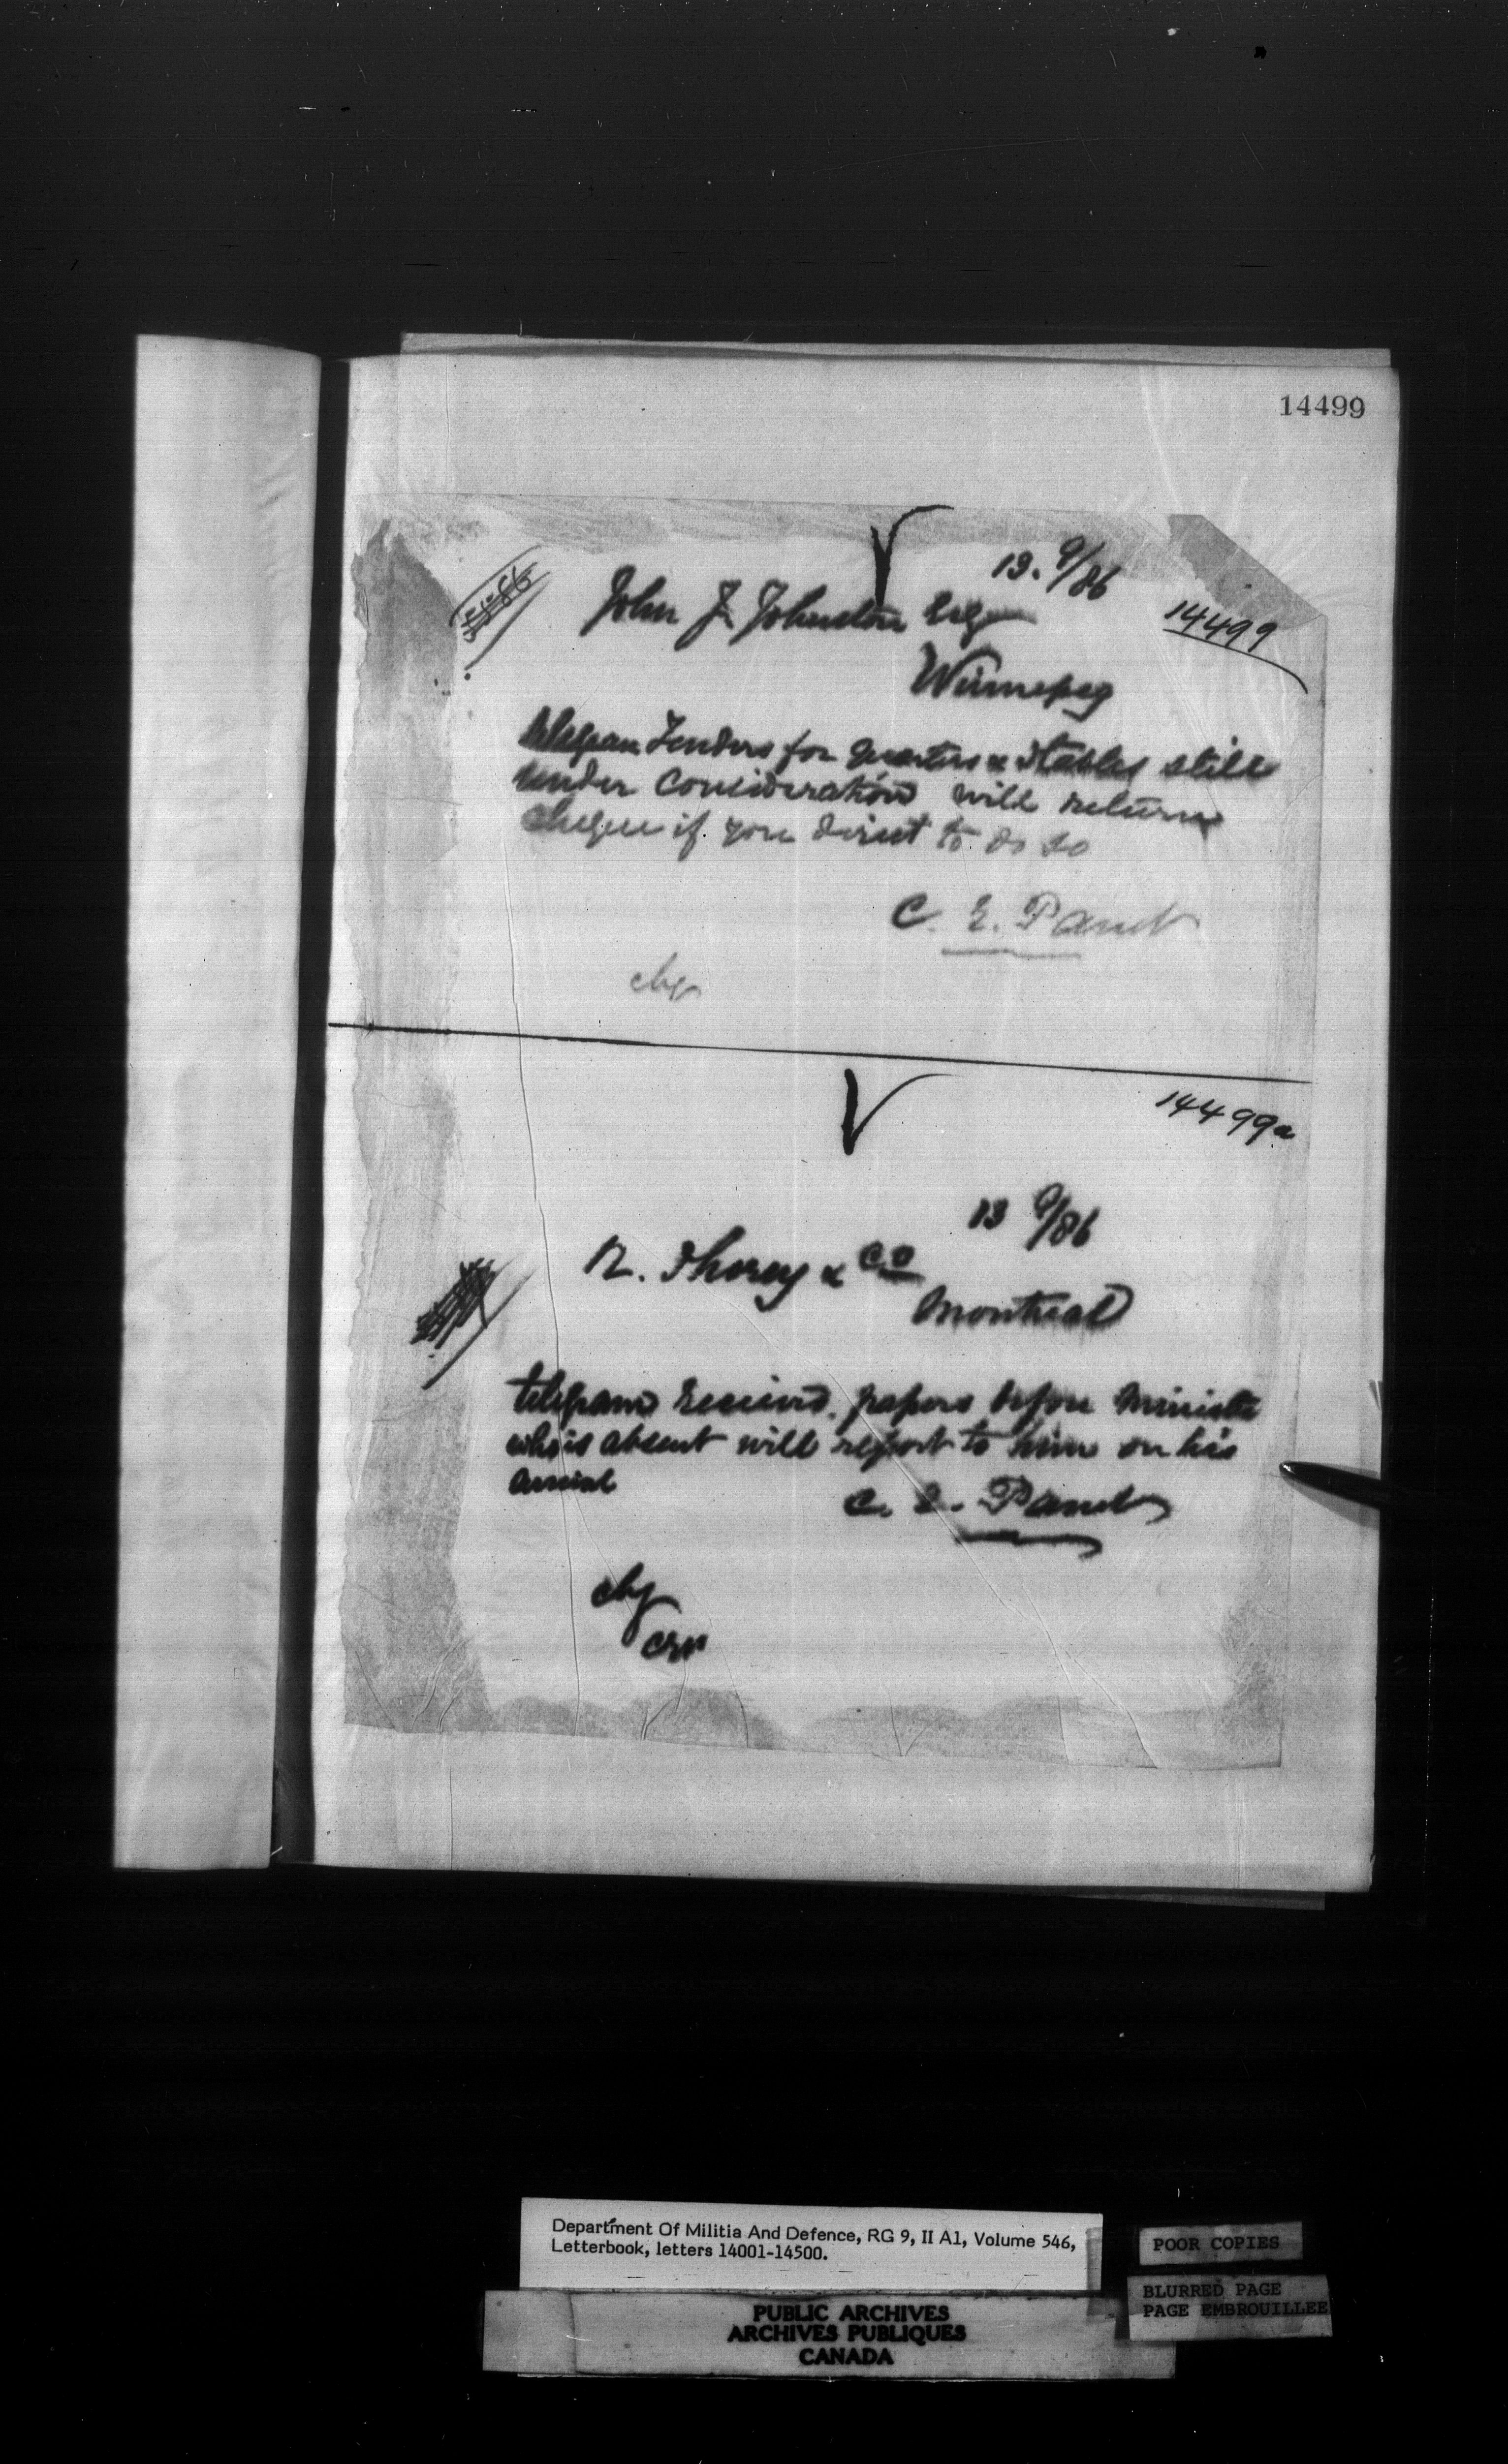 14499
13. 9/86
John J. Johnston Esq
14499
Winnepeg
telegram Tenders for Quarters & Stables still
under Consideration will return
cheque if you direct to do so
C. E. Panet
chg
14499a
13 9/86
& Co
Montreal
telegram received. papers before Minister
who is absent will report to him on his
arrival
C. E. Panet
chg
Department Of Militia And Defence, RG 9, II A1, Volume 546,
Letterbook, letters 14001-14500.
POOR COPIES
BLURRED PAGE
PAGE EMBROUILLEE
PUBLIC ARCHIVES
ARCHIVES PUBLIQUES
CANADA